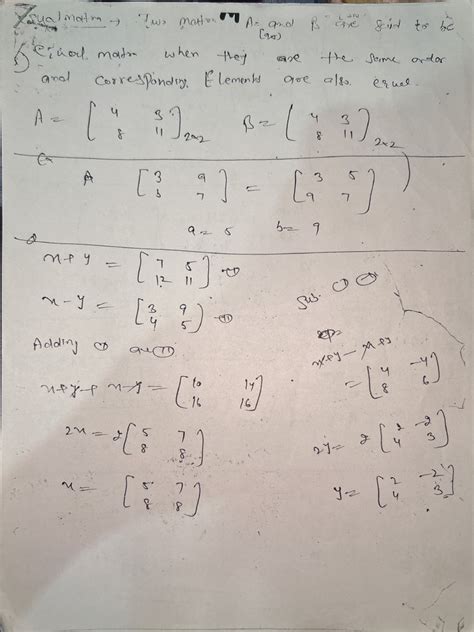 Equal matrix → Two matrix A = and B are said to be
Equal matrix when they are the same order
and corresponding Elements are also equal.
A = [4 3
8 11]2×2 B = [4 3
8 11]2×2
A [3 a
b 7] = [3 5
9 7]
a = 5 b = 9
x+y = [7 5
12 11] - ①
x-y = [3 9
4 5] - ②
Adding ① and ②
x+y+x-y = [10 14
16 16]
2x = 2[5 7
8 8]
x = [5 7
8 8]
Sub. ① ②
x+y-x+y
= [4 -4
8 6]
2y = 2[2 -2
4 3]
y = [2 -2
4 3]